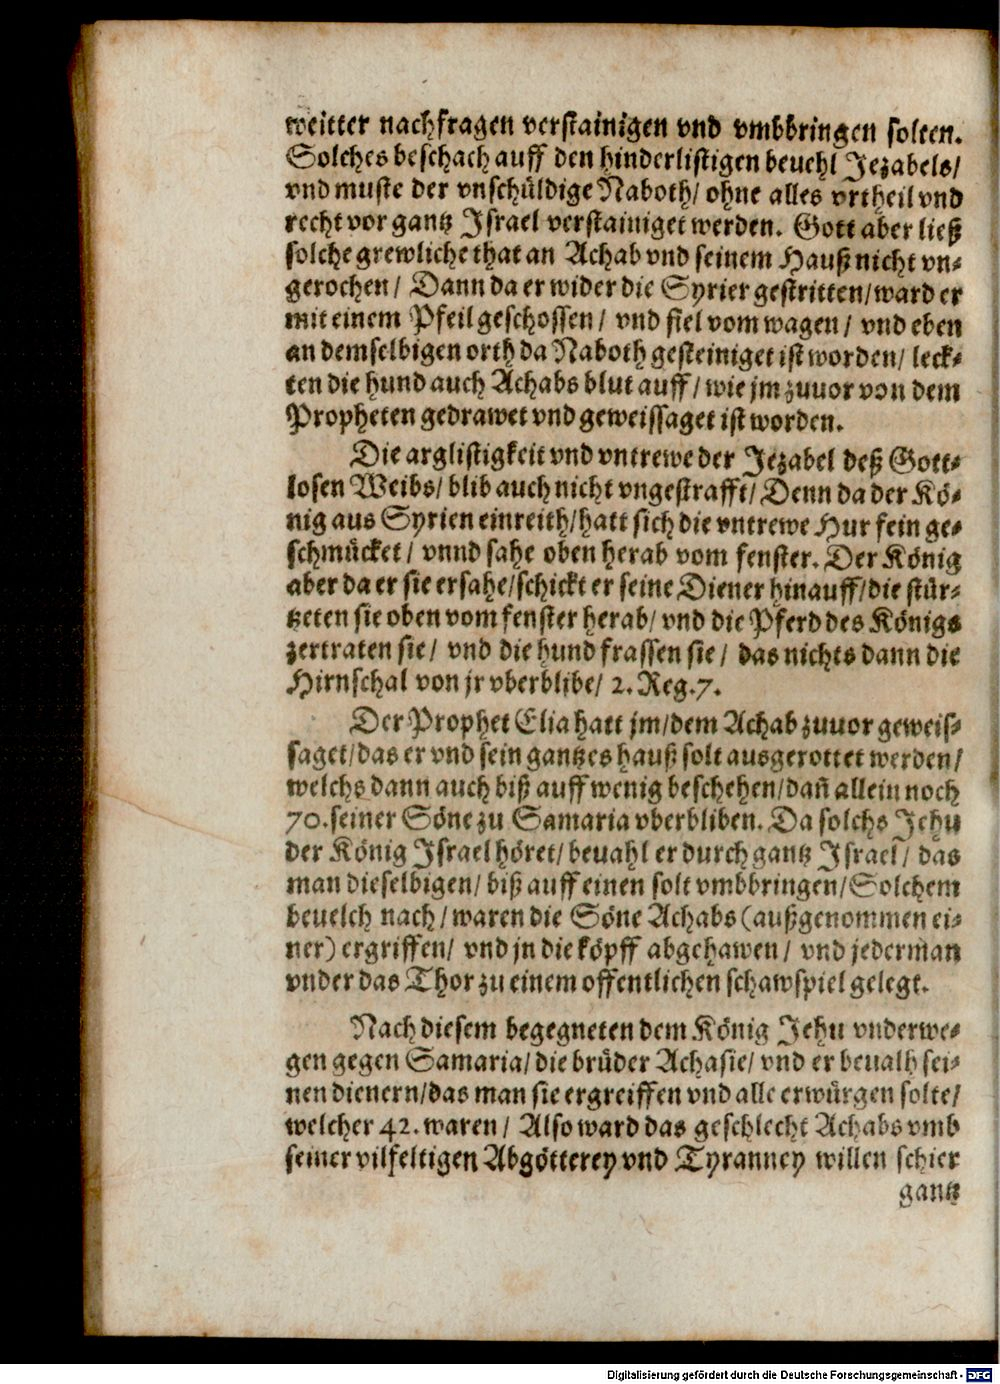 weitter nachfragen verstainigen vnd vmbbringen solten.
Solches beschach auff den hinderlistigen beuehl Jezabels/
vnd muste der vnschüldige Naboth/ ohne alles vrtheil vnd
recht vor gantz Israel verstainiget werden. Gott aber ließ
solche grewliche that an Achab vnd seinem Hauß nicht vn-
gerochen/ Dann da er wider die Syrier gestritten/ ward er
mit einem Pfeil geschossen/ vnd fiel vom wagen/ vnd eben
an demselbigen orth da Naboth gesteiniget ist worden/ leck-
ten die hund auch Achabs blut auff/ wie jm zuuor von dem
Propheten gedrawet vnd geweissaget ist worden.
Die arglistigkeit vnd vntrewe der Jezabel deß Gott-
losen Weibs/ blib auch nicht vngestrafft/ Denn da der Kö-
nig aus Syrien einreith/ hatt sich die vntrewe Hur fein ge-
schmücket/ vnnd sahe oben herab vom fenster. Der König
aber da er sie ersahe/ schickt er seine Diener hinauff/ die stür-
tzeten sie oben vom fenster herab/ vnd die Pferd des Königs
zertraten sie/ vnd die hund frassen sie/ das nichts dann die
Hirnschal von jr vberblibe/ 2. Reg. 7.
Der Prophet Elia hatt jm/ dem Achab zuuor geweis-
saget/ das er vnd sein gantzes hauß solt ausgerottet werden/
welchs dann auch biß auff wenig beschehen/ dañ allein noch
70. seiner Söne zu Samaria vberbliben. Da solchs Jehu
der König Israel höret/ beuahl er durch gantz Israel/ das
man dieselbigen/ biß auff einen solt vmbbringen/ Solchem
beuelch nach/ waren die Söne Achabs (außgenommen ei-
ner) ergriffen/ vnd jn die köpff abgehawen/ vnd jederman
vnder das Thor zu einem offentlichen schawspiel gelegt.
Nach diesem begegneten dem König Jehu vnderwe-
gen gegen Samaria/ die brüder Achasie/ vnd er beualh sei-
nen dienern/ das man sie ergreiffen vnd alle erwürgen solte/
welcher 42. waren/ Also ward das geschlecht Achabs vmb
seiner vilfeltigen Abgötterey vnd Tyranney willen schier
gantz
Digitalisierung gefördert durch die Deutsche Forschungsgemeinschaft - DFG